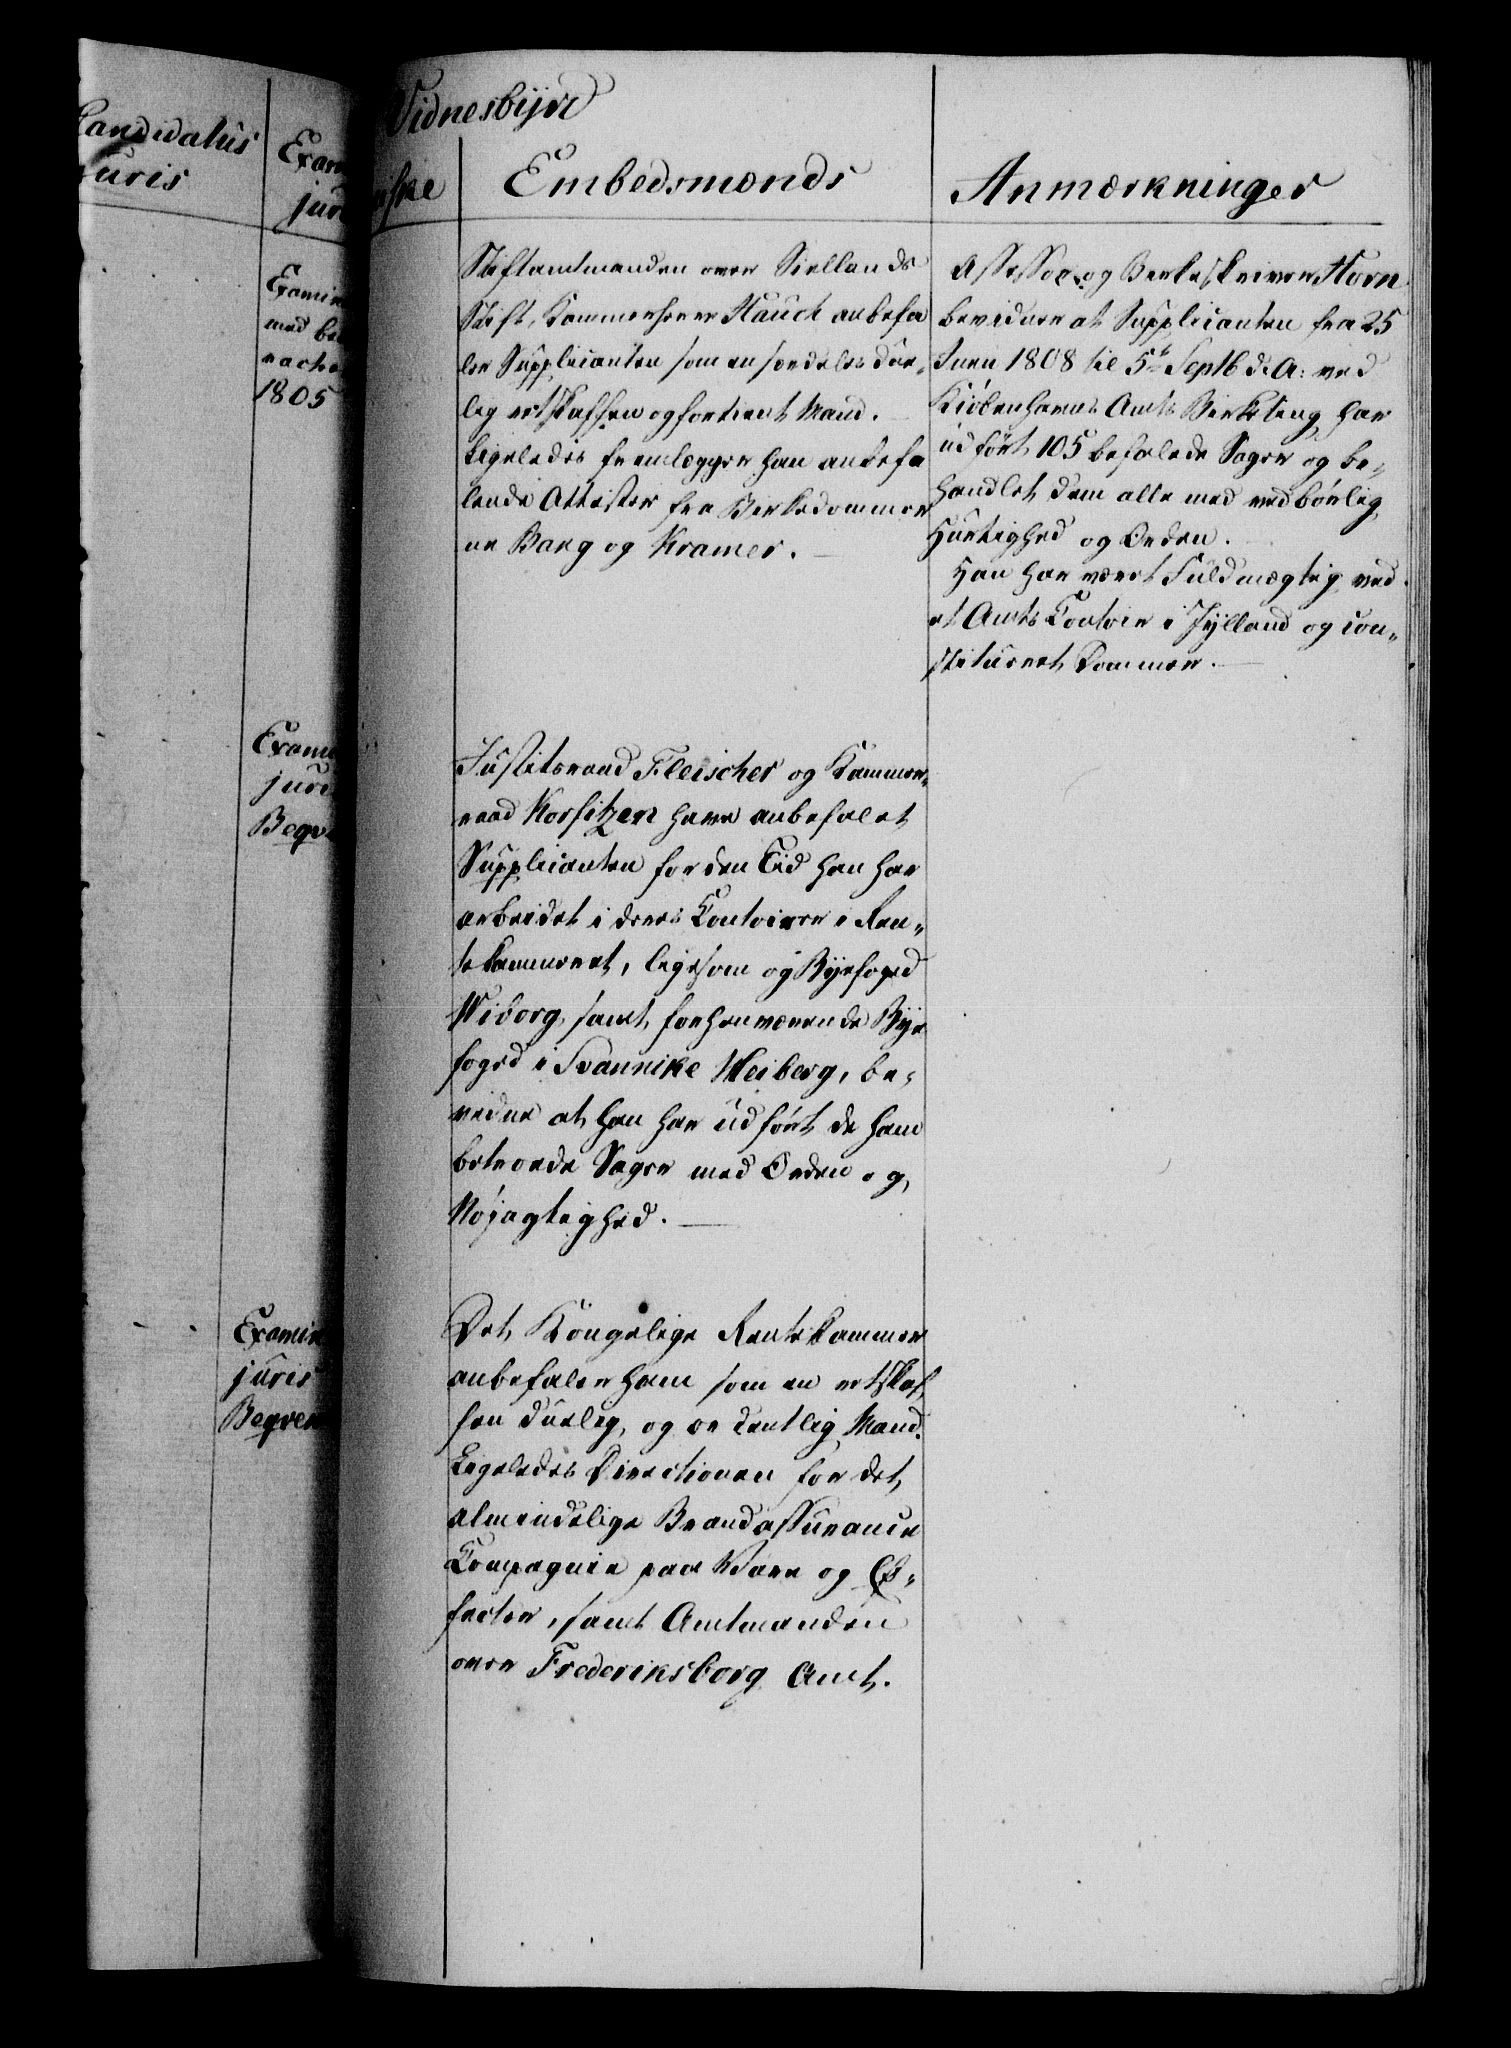 Candidatus
juris
Exam
juri
Examin
med be
racte
1805
Exami
juri
Beqve
Examin
juris
Beqvem
Vidnesbyrd
iske
Embedsmænds
Anmærkninger
Stiftamtmanden over Siellands
Stift, Kammerherre Hauch anbefa
ler Supplicanten som en særdeles due„
lig retskaffen og fortient Mand.
Ligeledes fremlægger han anbefa
lende Attester fra Birkedommer
ne Bang og Kramer. —
Assessor og Birkeskriver Horn
bevidner at Supplicanten fra 25
Juni 1808 til 5te Septb d: A: ved
Kiøbenhavns Amts Birketing har
udført 105 befalede Sager og be„
handlet dem alle med vedbørlig
Hurtighed og Orden.
Han har været Fuldmægtig ved
et Amts Contoir i Jylland og con„
stitueret Dommer. —
Justitsraad Fleischer og Kammer„
raad Korsitzen have anbefalet
Supplicanten for den Tid han har
arbeidet i deres Contoirer i Ren„
tekammeret, ligesom og Byefoged
Wiborg samt forhenværende Bye
foged i Svannike Weiberg, be„
vidne at han har udført de ham
betroede Sager med Orden og
Nøjagtighed. —
Det Kongelige Rentekammer
anbefaler ham som en retskaf
fen duelig og ordentlig Mand.
Ligeledes Directionen for det
almindelige Brandassurance
Compagnie paa Vare og Ef„
fecter, samt Amtmanden
over Frederiksborg Amt.